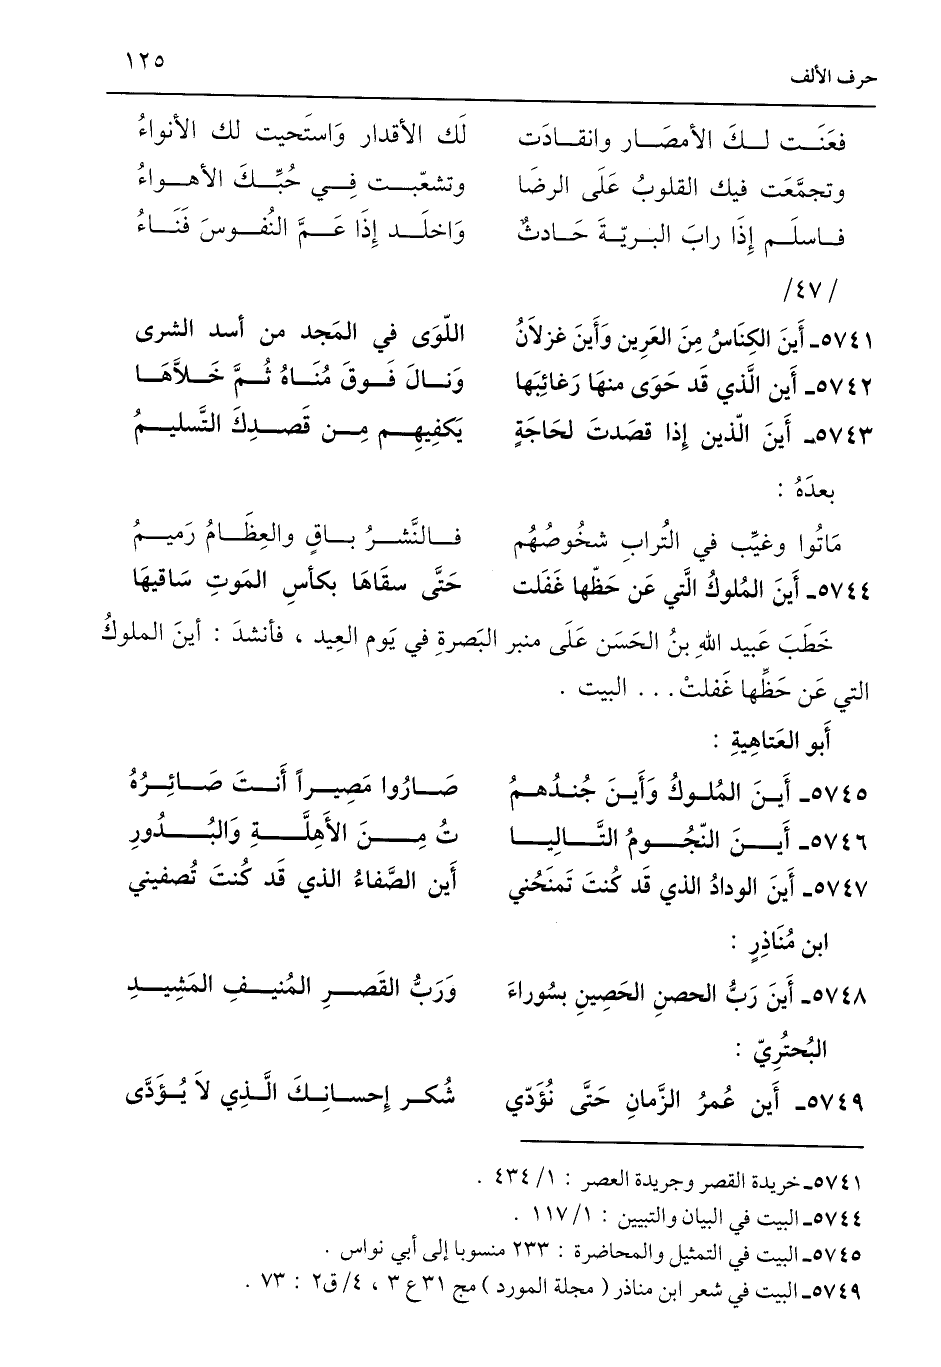 حرف الألف ١٢٥
فعَنَـت لـكَ الأمصَـار وانقـادَت لَك الأقدار وَاستَحيت لك الأنواءُ
وتجمَّعَت فيك القلوبُ عَلَى الرضَا وتشعّبـت فِـي حُبِّـكَ الأهـواءُ
فـاسلَـم إِذَا رابَ البـريّـةَ حَـادثٌ وَاخلَـد إِذَا عَـمَّ النُفُـوسَ فَنَـاءُ
/٤٧/
٥٧٤١ـ أَينَ الكِنَاسُ مِنَ العَرِين وَأَينَ غزلاَنُ اللّوَى في المَجد من أسد الشرى
٥٧٤٢ـ أَين الَّذي قَد حَوَى منهَا رَغائِبَها وَنـالَ فَـوقَ مُنَاهُ ثُـمَّ خَـلاَّهَـا
٥٧٤٣ـ أَينَ الّذين إذا قصَدتَ لحَاجَةٍ يَكفِيهِـم مِـن قَصدِكَ التَّسليـمُ
بعدَهُ :
مَاتُوا وغيِّب في التُراب شخُوصُهُم فـالنَّشـرُ بـاقٍ والعِظَـامُ رَميـمُ
٥٧٤٤ـ أَينَ المُلوكُ الَّتي عَن حَظّها غَفَلت حَتَّى سقَاهَا بكَأسِ المَوتِ سَاقيهَا
خَطَبَ عَبيد اللهِ بنُ الحَسَن عَلَى منبر البَصرةِ في يَوم العِيد ، فأنشدَ : أينَ الملوكُ
التي عَن حَظِّها غَفلتْ... البيت .
أَبو العَتاهِيةِ :
٥٧٤٥ـ أَيـنَ المُلـوكُ وَأَيـنَ جُنـدُهـمُ صَـارُوا مَصِيـراً أَنـتَ صَـائِـرُهُ
٥٧٤٦ـ أَيـنَ النّجُـومُ التَّـاليـا تُ مِـنَ الأَهِلَّـةِ وَالبُـدُورِ
٥٧٤٧ـ أَينَ الودادُ الذي قَد كُنتَ تَمنَحُني أَين الصَّفاءُ الذي قَد كُنتَ تُصفيني
ابن مُنَاذِرٍ :
٥٧٤٨ـ أَينَ رَبُّ الحصنِ الحَصِينِ بسُوراءَ وَرَبُّ القَصـرِ المُنيـفِ المَشيـدِ
البُحتُرِيّ :
٥٧٤٩ـ أَين عُمرُ الزَّمانِ حَتَّى نُؤَدّي شُكـر إحسـانِـكَ الَّـذي لاَ يُـؤَدَّى
٥٧٤١ـ خريدة القصر وجريدة العصر : ٤٣٤/١ .
٥٧٤٤ـ البيت في البيان والتبيين : ١١٧/١ .
٥٧٤٥ـ البيت في التمثيل والمحاضرة : ٢٣٣ منسوبا إلى أبي نواس .
٥٧٤٩ـ البيت في شعر ابن مناذر ( مجلة المورد ) مج ٣١ع٣ ، ٤/ق٢ : ٧٣ .